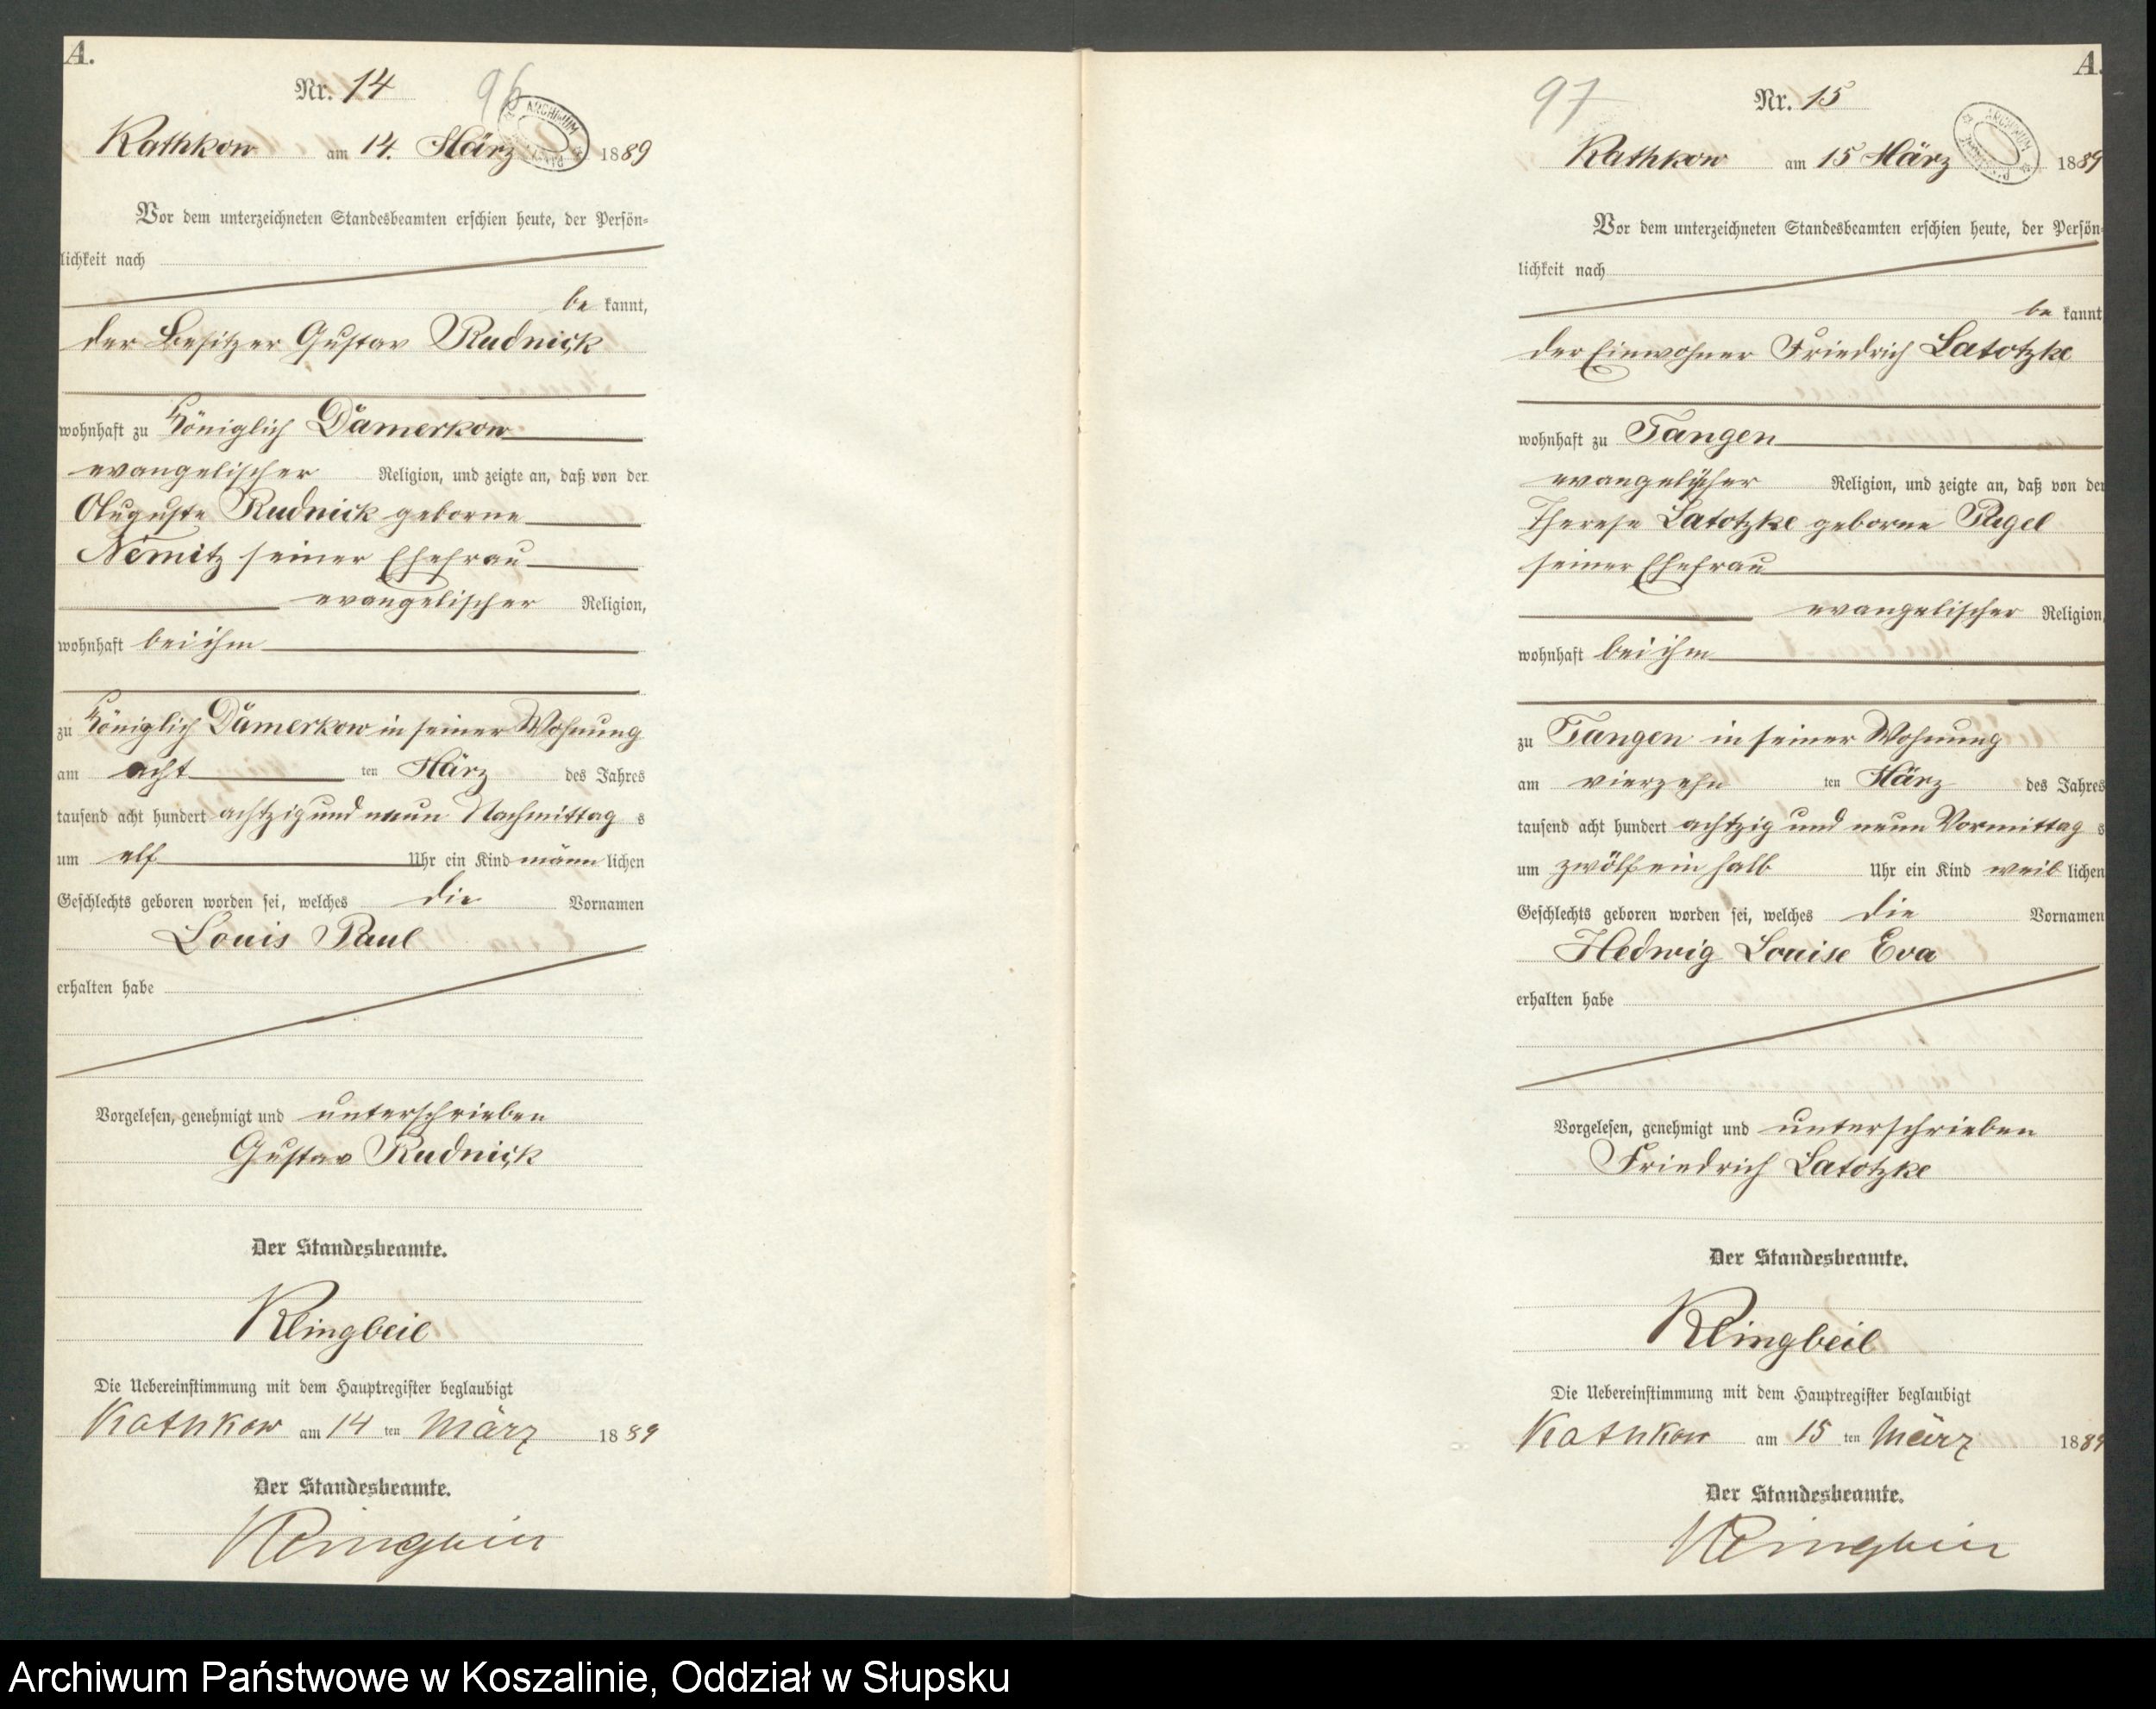 A.
Nr. 14
96
Kathkow am 14. März 1889
ARCHIWUM
Vor dem unterzeichneten Standesbeamten erschien heute, der Persön-
lichkeit nach
be kannt,
der Besitzer Gustav Rudnick
wohnhaft zu Königlich Damerkow
evangelischer Religion, und zeigte an, daß von der
Auguste Rudnick geborne
Nemitz seiner Ehefrau
evangelischer Religion,
wohnhaft bei ihm
zu Königlich Damerkow in seiner Wohnung
am acht ten März des Jahres
tausend acht hundert achtzig und neun Nachmittag s
um elf Uhr ein Kind männ lichen
Geschlechts geboren worden sei, welches die Vornamen
Louis Paul
erhalten habe
Vorgelesen, genehmigt und unterschrieben
Gustav Rudnick
Der Standesbeamte.
Klingbeil
Die Uebereinstimmung mit dem Hauptregister beglaubigt
Kathkow am 14 ten März 1889
Der Standesbeamte.
Klingbeil
A.
97
Nr. 15
Kathkow am 15 März 1889
ARCHIWUM
Vor dem unterzeichneten Standesbeamten erschien heute, der Persön-
lichkeit nach
be kannt
der Einwohner Friedrich Latotzke
wohnhaft zu Tangen
evangelischer Religion, und zeigte an, daß von der
Therese Latotzke geborne Pigel
seiner Ehefrau
evangelischer Religion,
wohnhaft bei ihm
zu Tangen in seiner Wohnung
am vierzehn ten März des Jahres
tausend acht hundert achtzig und neun Vormittag s
um zwölf ein halb Uhr ein Kind weib lichen
Geschlechts geboren worden sei, welches die Vornamen
Hedwig Louise Eva
erhalten habe
Vorgelesen, genehmigt und unterschrieben
Friedrich Latotzke
Der Standesbeamte.
Klingbeil
Die Uebereinstimmung mit dem Hauptregister beglaubigt
Kathkow am 15 ten März 1889
Der Standesbeamte.
Klingbeil
Archiwum Państwowe w Koszalinie, Oddział w Słupsku